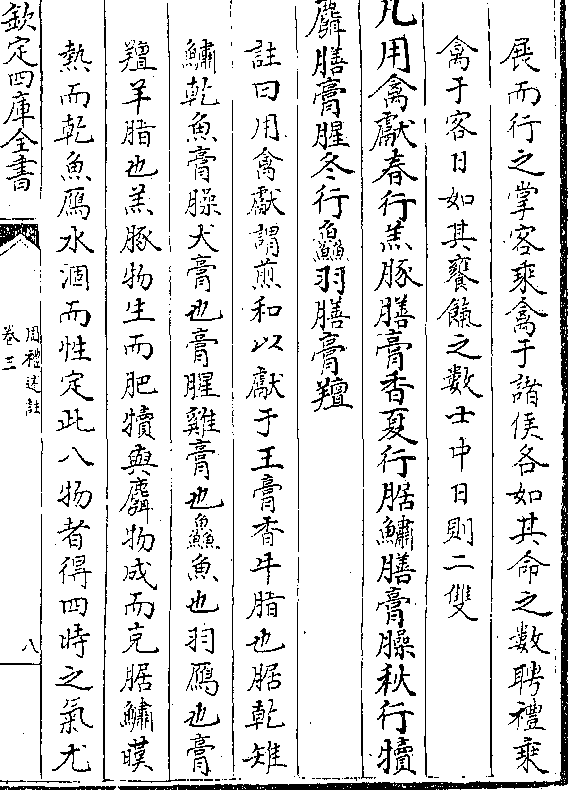 展而行之掌客乘禽于諸侯各如其命之數聘禮乘
禽于客日如其饔餼之數士中日則二雙
凡用禽獻春行羔豚膳膏香夏行腒鱐膳膏臊秋行犢
麛膳膏腥冬行鱻羽膳膏羶
註曰用禽獻謂煎和以獻于王膏香牛脂也腒乾雉
鱐乾魚膏臊犬膏也膏腥雞膏也鱻魚也羽鴈也膏
羶羊脂也羔豚物生而肥犢與麛物成而充腒鱐暵
熱而乾魚鴈水涸而性定此八物者得四時之氣尤
欽定四庫全書
周禮述註
卷三
八